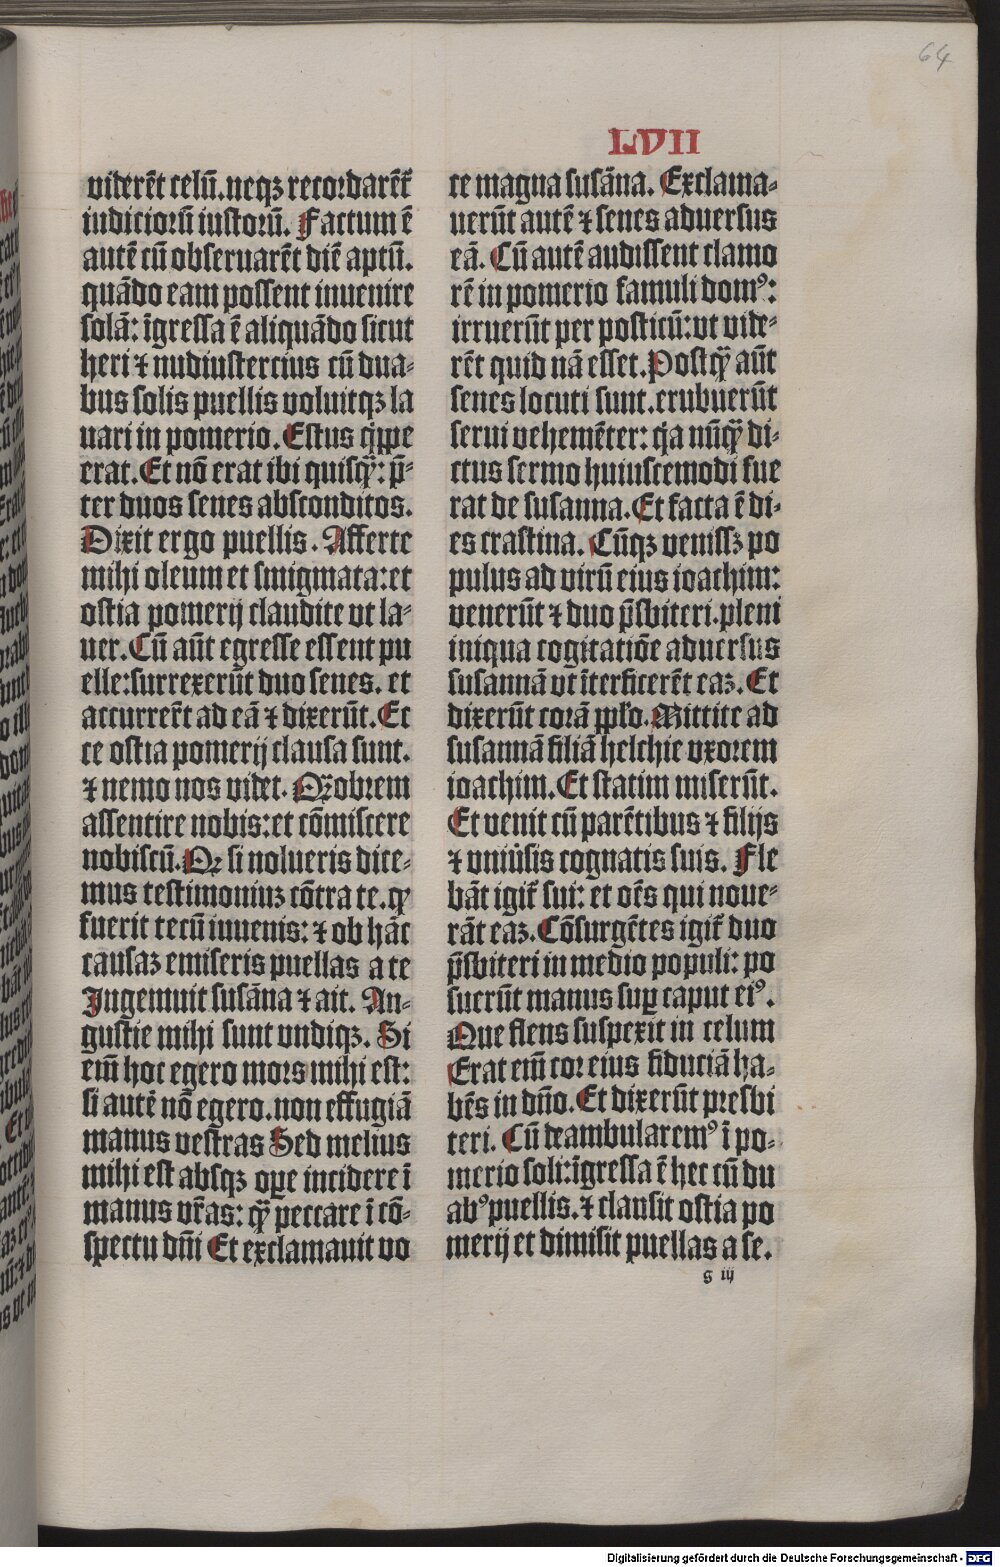 64
LVII
viderēt celū.neqꝫ recordarēt᷑
iudiciorū iustorū. Factum ē
autē cū obseruarēt diē aptū.
quādo eam possent inuenire
solā: īgressa ē aliquādo sicut
heri ⁊ nudiustercius cū dua⸗
bus solis puellis voluitqꝫ la
uari in pomerio. Estus q̇ppe
erat. Et nō erat ibi quisqꝫ̄: p̄⸗
ter duos senes absconditos.
Dixit ergo puellis. Afferte
mihi oleum et smigmata: et
ostia pomerij claudite vt la⸗
uer. Cū aūt egresse essent pu
elle: surrexerūt duo senes. et
accurrer̄t ad eā ⁊ dixerūt. Ec
ce ostia pomerij clausa sunt.
⁊ nemo nos videt. Qꝛobrem
assentire nobis: et cōmiscere
nobiscū. Qꝛ si nolueris dice⸗
mus testimoniuꝫ cōtra te. qꝙ
fuerit tecū iuuenis: ⁊ ob hāc
causaꝫ emiseris puellas a te
Ingemuit susāna ⁊ ait. An⸗
gustie mihi sunt vndiqꝫ. Si
eīm hoc egero mors mihi est:
si autē nō egero. non effugiā
manus vestras Sed melius
mihi est absqꝫ oꝑe incidere ī
manus vr̄as: qꝫ̄ peccare ī cō⸗
spectu dn̄i Et exclamauit vo
ce magna susāna. Exclama⸗
uerūt autē ⁊ senes aduersus
eā. Cū autē audissent clamo
rē in pomerio famuli domꝰ:
irruerūt per posticū: vt vide⸗
rēt quid nā esset. Postqꝫ̄ aūt
senes locuti sunt. erubuerūt
serui vehemēter: q̇a nūqꝫ̄ di⸗
ctus sermo huiuscemodi fue
rat de susanna. Et facta ē di⸗
es crastina. Cūqꝫ venissꝫ po
pulus ad virū eius ioachim:
venerūt ⁊ duo p̄sbiteri. pleni
iniqua cogitatiōe aduersus
susannā vt īterficerēt eaꝫ. Et
dixerūt corā pp̄lo. Mittite ad
susannā filiā helchie vxorem
ioachim. Et statim miserūt.
Et venit cū parētibus ⁊ filijs
⁊ vniūsis cognatis suis. Fle
bāt igit᷑ sui: et oēs qui noue⸗
rāt eaꝫ. Cōsurgētes igit᷑ duo
p̄sbiteri in medio populi: po
suerūt manus suꝑ caput eiꝰ.
Que flens suspexit in celum
Erat eīm cor eius fiduciā ha⸗
bēs in dn̄o. Et dixerūt presbi
teri. Cū deambularemꝰ ī po⸗
merio soli: īgressa ē hec cū du
abꝰ puellis. ⁊ clausit ostia po
merij et dimisit puellas a se.
g iij
Digitalisierung gefördert durch die Deutsche Forschungsgemeinschaft - DFG